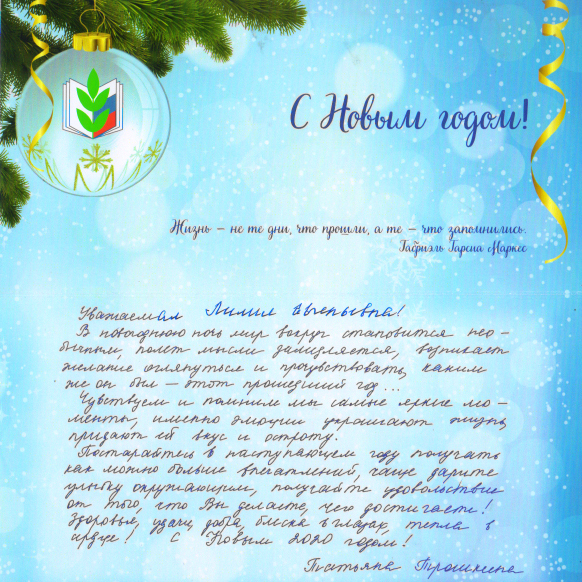 С Новым годом!
Жизнь – не те дни, что прошли, а те – что запомнились.
Габриэль Гарсиа Маркес
Уважаемая Лилия
В новогоднюю ночь мир вокруг становится нео-
бычным, полет мысли замедляется, возникает
желание оглянуться и прочувствовать, каким
же он был – этот прошедший год...
Чувствуем и помним мы самые яркие мо-
менты, именно эмоции украшают жизнь,
придают ей вкус и остроту.
Постарайтесь в наступающем году получать
как можно больше впечатлений, чаще дарите
улыбку окружающим, получайте удовольствие
от того, что Вы делаете, чего достигаете!
Здоровья, удачи, добра, блеска в глазах, тепла в
сердце! С Новым 2020 годом!
Татьяна Трошкина